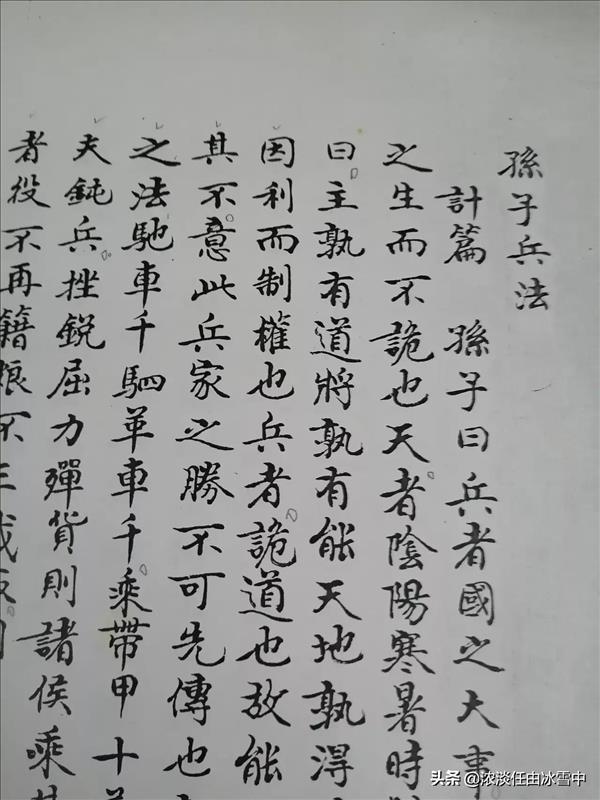 孫子兵法
計篇 孫子曰兵者國之大事
之生而不詭也天者陰陽寒暑時
曰主孰有道將孰有能天地孰得
因利而制權也兵者詭道也故能
其不意此兵家之勝不可先傳也
之法馳車千駟革車千乘帶甲十萬
夫鈍兵挫銳屈力殫貨則諸侯乘其
者役不再籍粮不三載取用
头条 @浓淡任由冰雪中